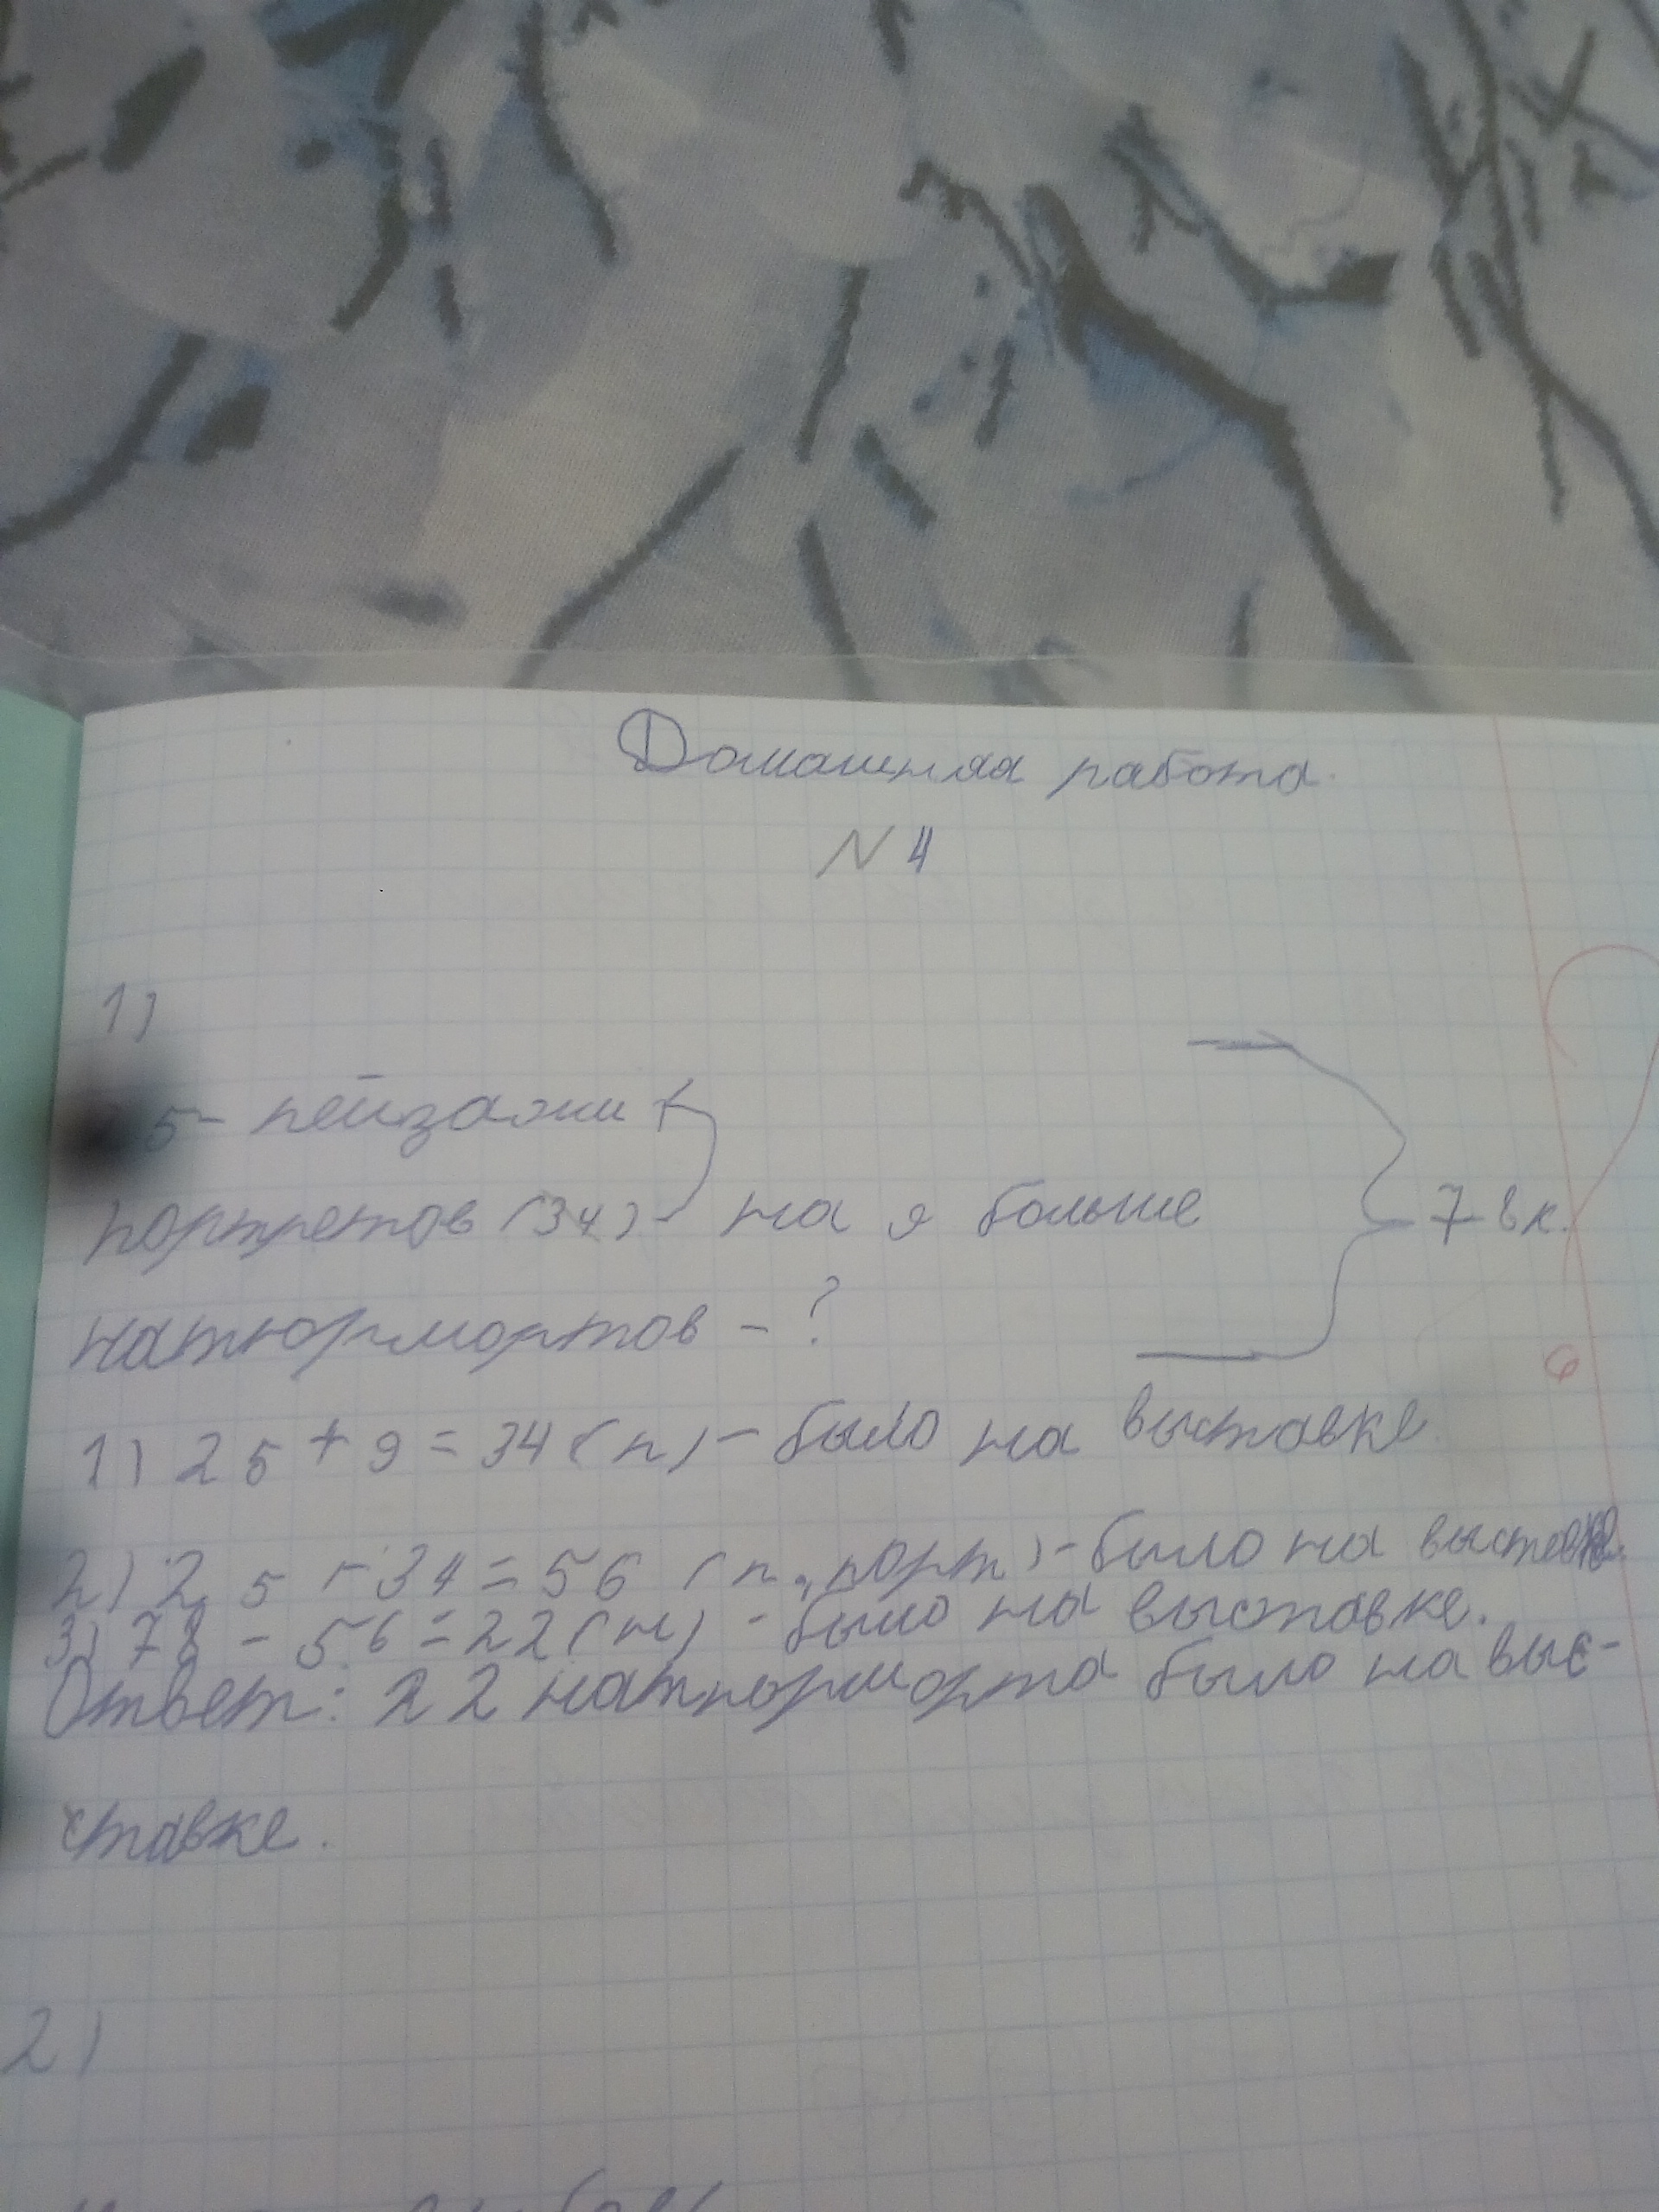 Домашняя работа.
N 4
1)
5- пейзажи
портретов (34) - на 9 больше
78к.
натюрмортов - ?
1) 25 + 9 = 34 (п) - было на выставке
2) 25 + 34 = 56 (п., порт) - было на выставке.
3) 78 - 56 = 22 (н) - было на выставке.
Ответ: 22 натюрморта было на выс-
ставке.
2)